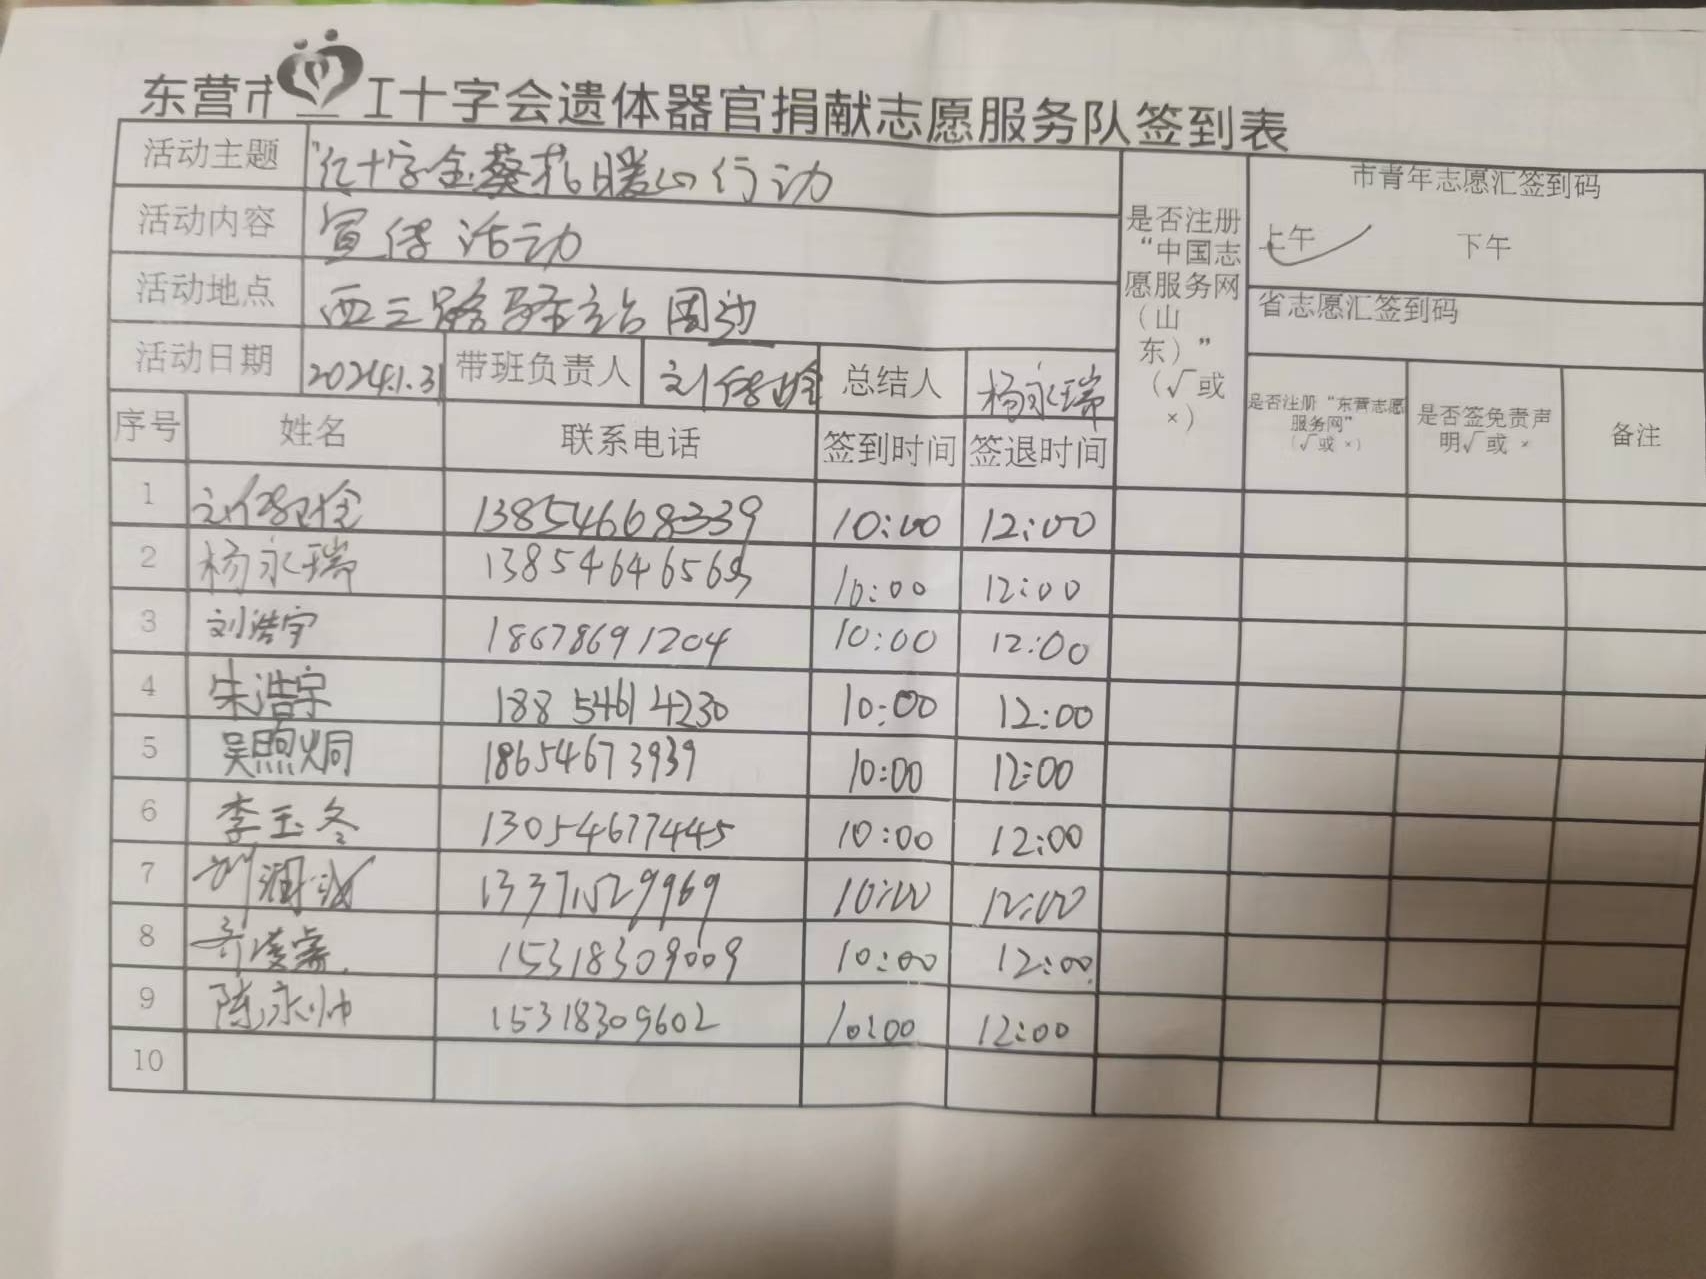 东营市 红十字会遗体器官捐献志愿服务队签到表
活动主题 "红十字金葵花暖心行动
活动内容 宣传活动
活动地点 西三路驿站周边
活动日期 2024.1.31 带班负责人 刘 总结人 杨永瑞
是否注册“中国志愿服务网（山东）”（√或×）
市青年志愿汇签到码
上午 下午
省志愿汇签到码
序号 姓名 联系电话 签到时间 签退时间 是否注册“东营志愿服务网”（√或×） 是否签免责声明√或× 备注
1 刘 13854668339 10:00 12:00
2 杨永瑞 13854646565 10:00 12:00
3 刘浩宇 18678691204 10:00 12:00
4 朱浩宇 18854614230 10:00 12:00
5 吴煦炯 18654673939 10:00 12:00
6 李玉冬 13054677445 10:00 12:00
7 刘润 13371529969 10:00 12:00
8 15318309009 10:00 12:00
9 陈永帅 15318309602 10:00 12:00
10